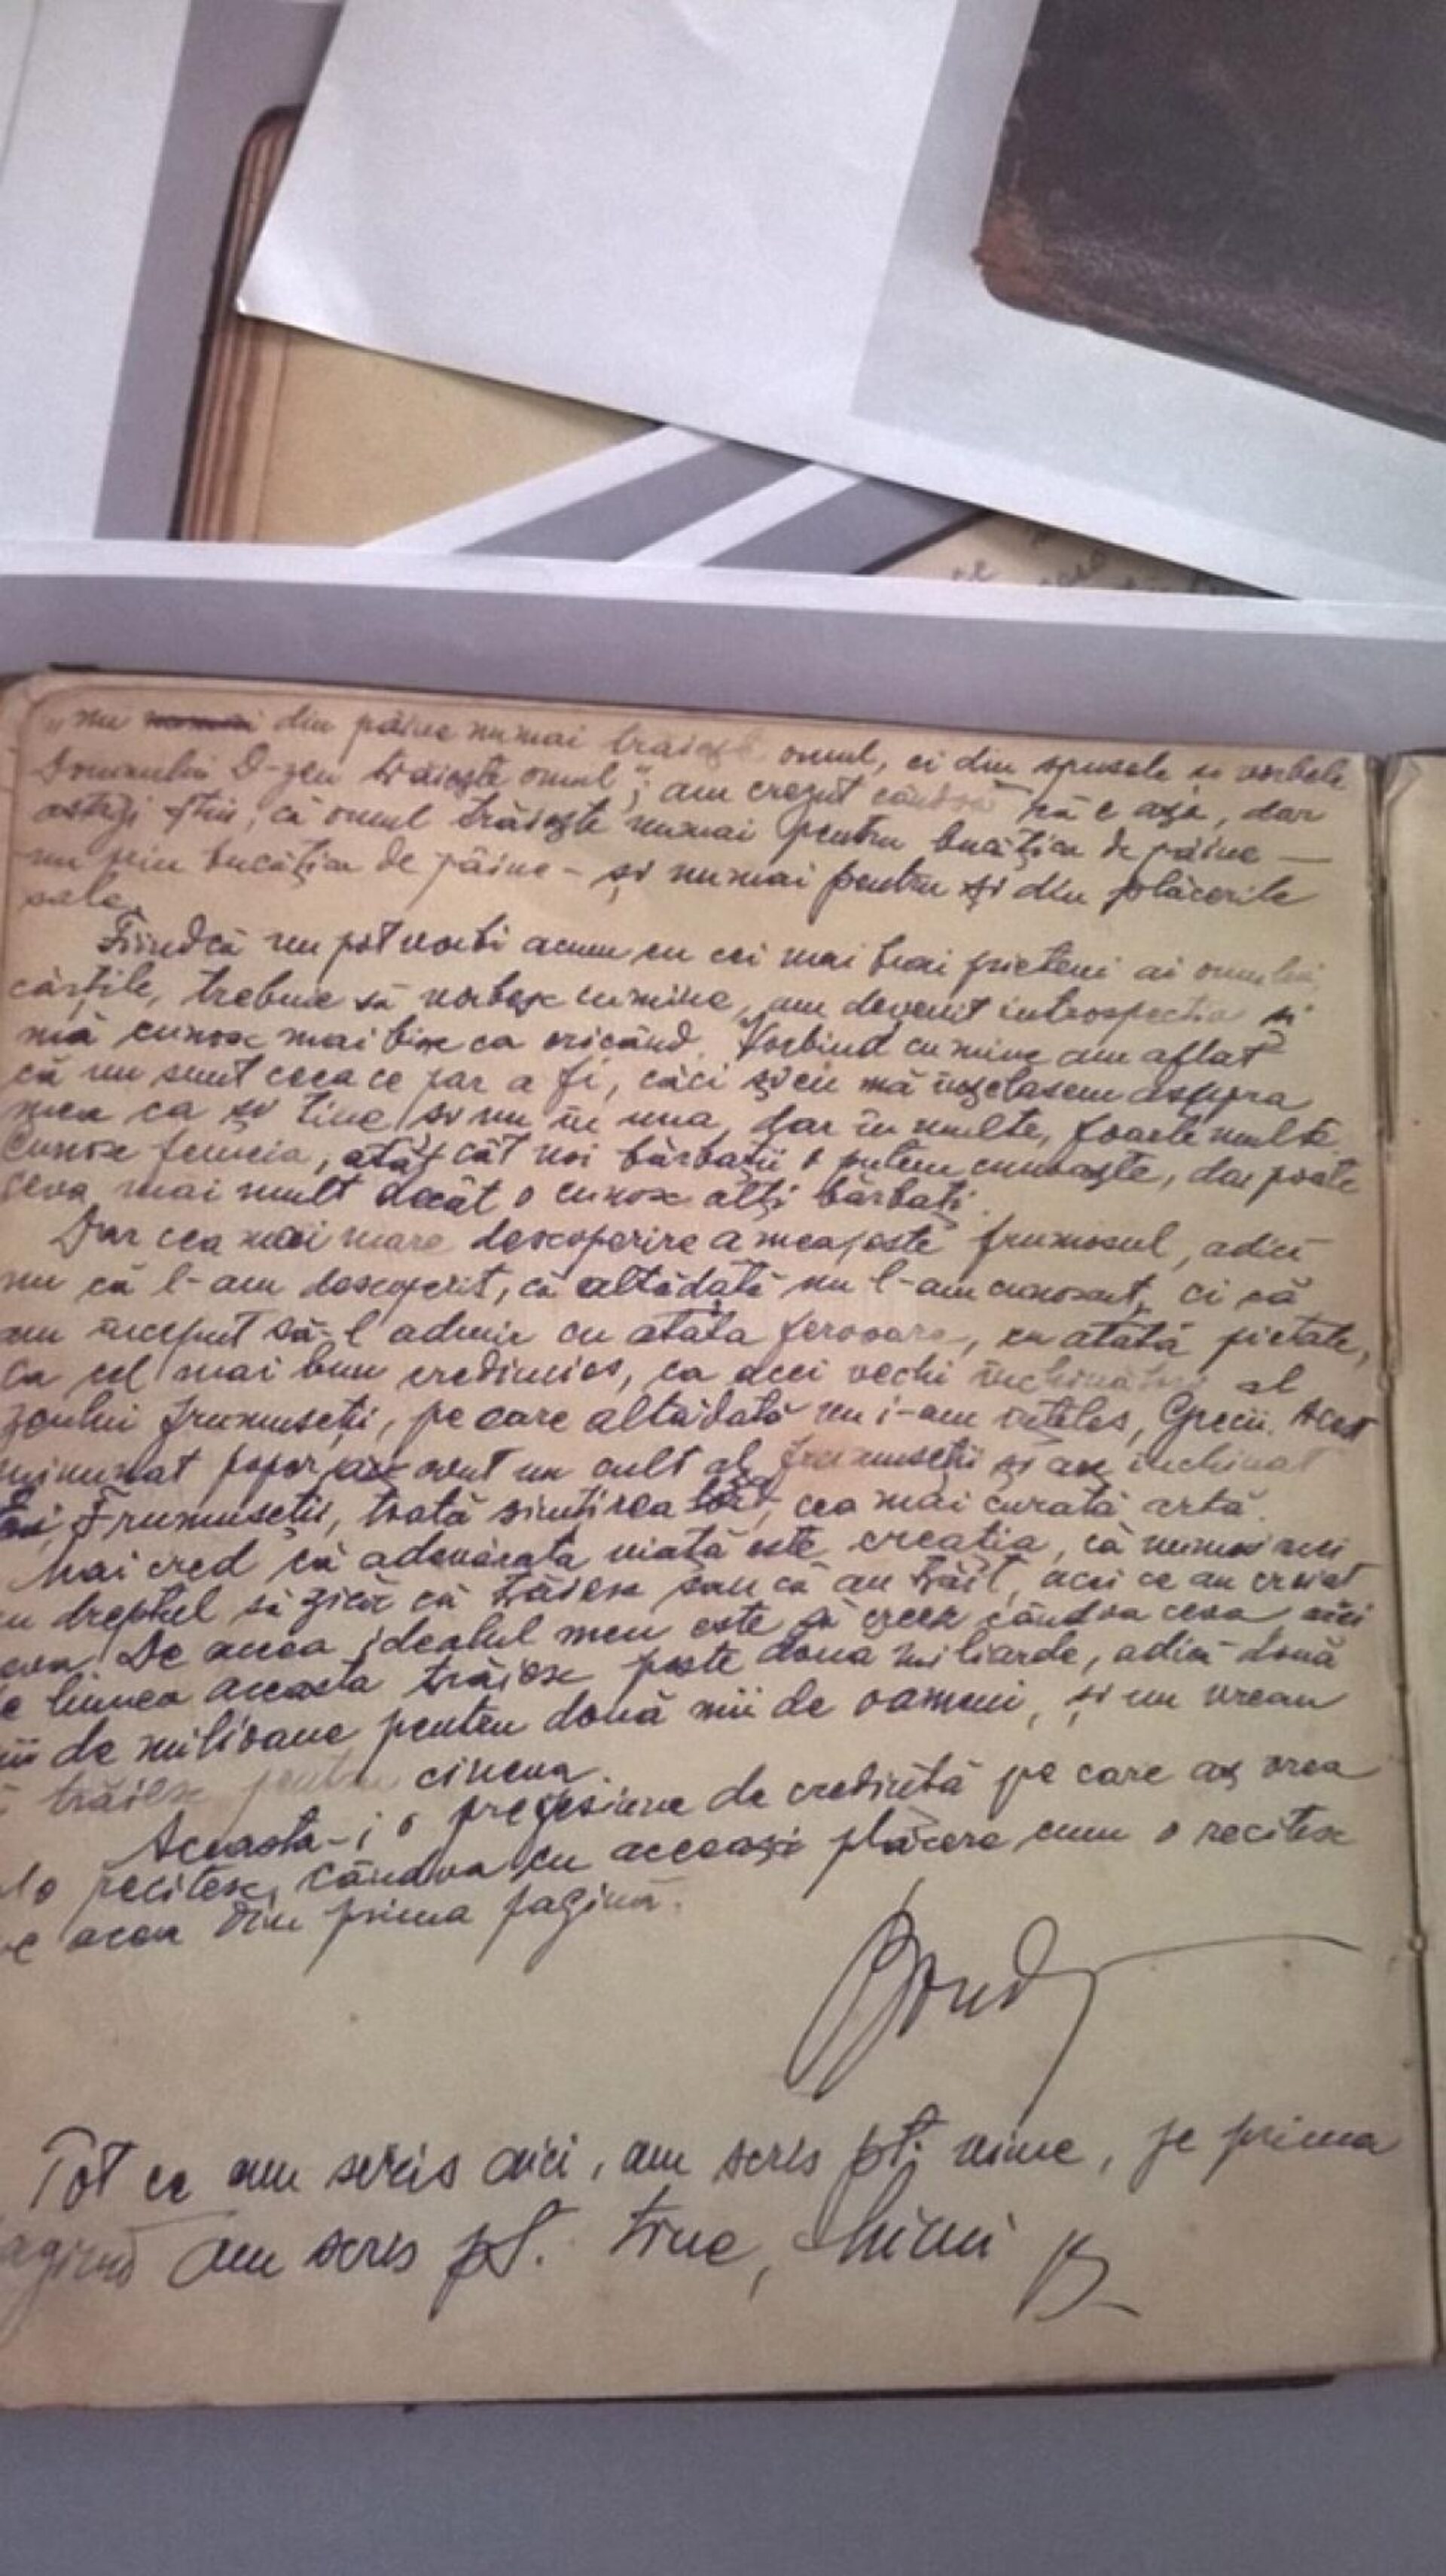 „nu din pâine numai trăiește omul, ci din spusele și vorbele
Domnului D-zeu trăiește omul”; am crezut cândva că e așa, dar
astăzi știu, că omul trăiește numai pentru bucățica de pâine —
nu prin bucățica de pâine - și numai pentru și din plăcerile
sale.
Fiindcă nu pot vorbi acum cu cei mai buni prieteni ai omului,
cărțile, trebuie să vorbesc cu mine, am devenit introspectiv și
mă cunosc mai bine ca oricând. Vorbind cu mine am aflat
că nu sunt ceea ce par a fi, căci și eu mă înșelasem asupra
mea ca și tine și nu în una, dar în multe, foarte multe.
Cunosc femeia, atât cât noi bărbații o putem cunoaște, dar poate
ceva mai mult decât o cunosc alți bărbați.
Dar cea mai mare descoperire a mea este frumosul, adică
nu că l-am descoperit, că altădată nu l-am cunoscut, ci că
am început să-l admir cu atâta fervoare, cu atâta pietate,
ca cel mai bun credincios, ca acei vechi închinători al
zeului frumuseții, pe care altădată nu i-am înțeles, Grecii. Acest
minunat popor avut un cult al frumuseții și au închinat
Frumuseții, toată simțirea lor, cea mai curată artă.
Mai cred că adevărata viață este creația, că numai acei
au dreptul să zică că trăiesc sau că au trăit, acei ce au creiat
ceva. De aceea idealul meu este să creez cândva ceva căci
pe lumea aceasta trăiesc peste două miliarde, adică două
mii de milioane pentru două mii de oameni, și nu vreau
să trăiesc pentru cineva.
Aceasta-i o profesiune de credință pe care aș vrea
s-o recitesc, cândva cu aceeași plăcere cum o recitesc
pe aceea din prima pagină.
Tot ce am scris aici, am scris pt. mine, pe prima
pagină am scris pt. tine,
B